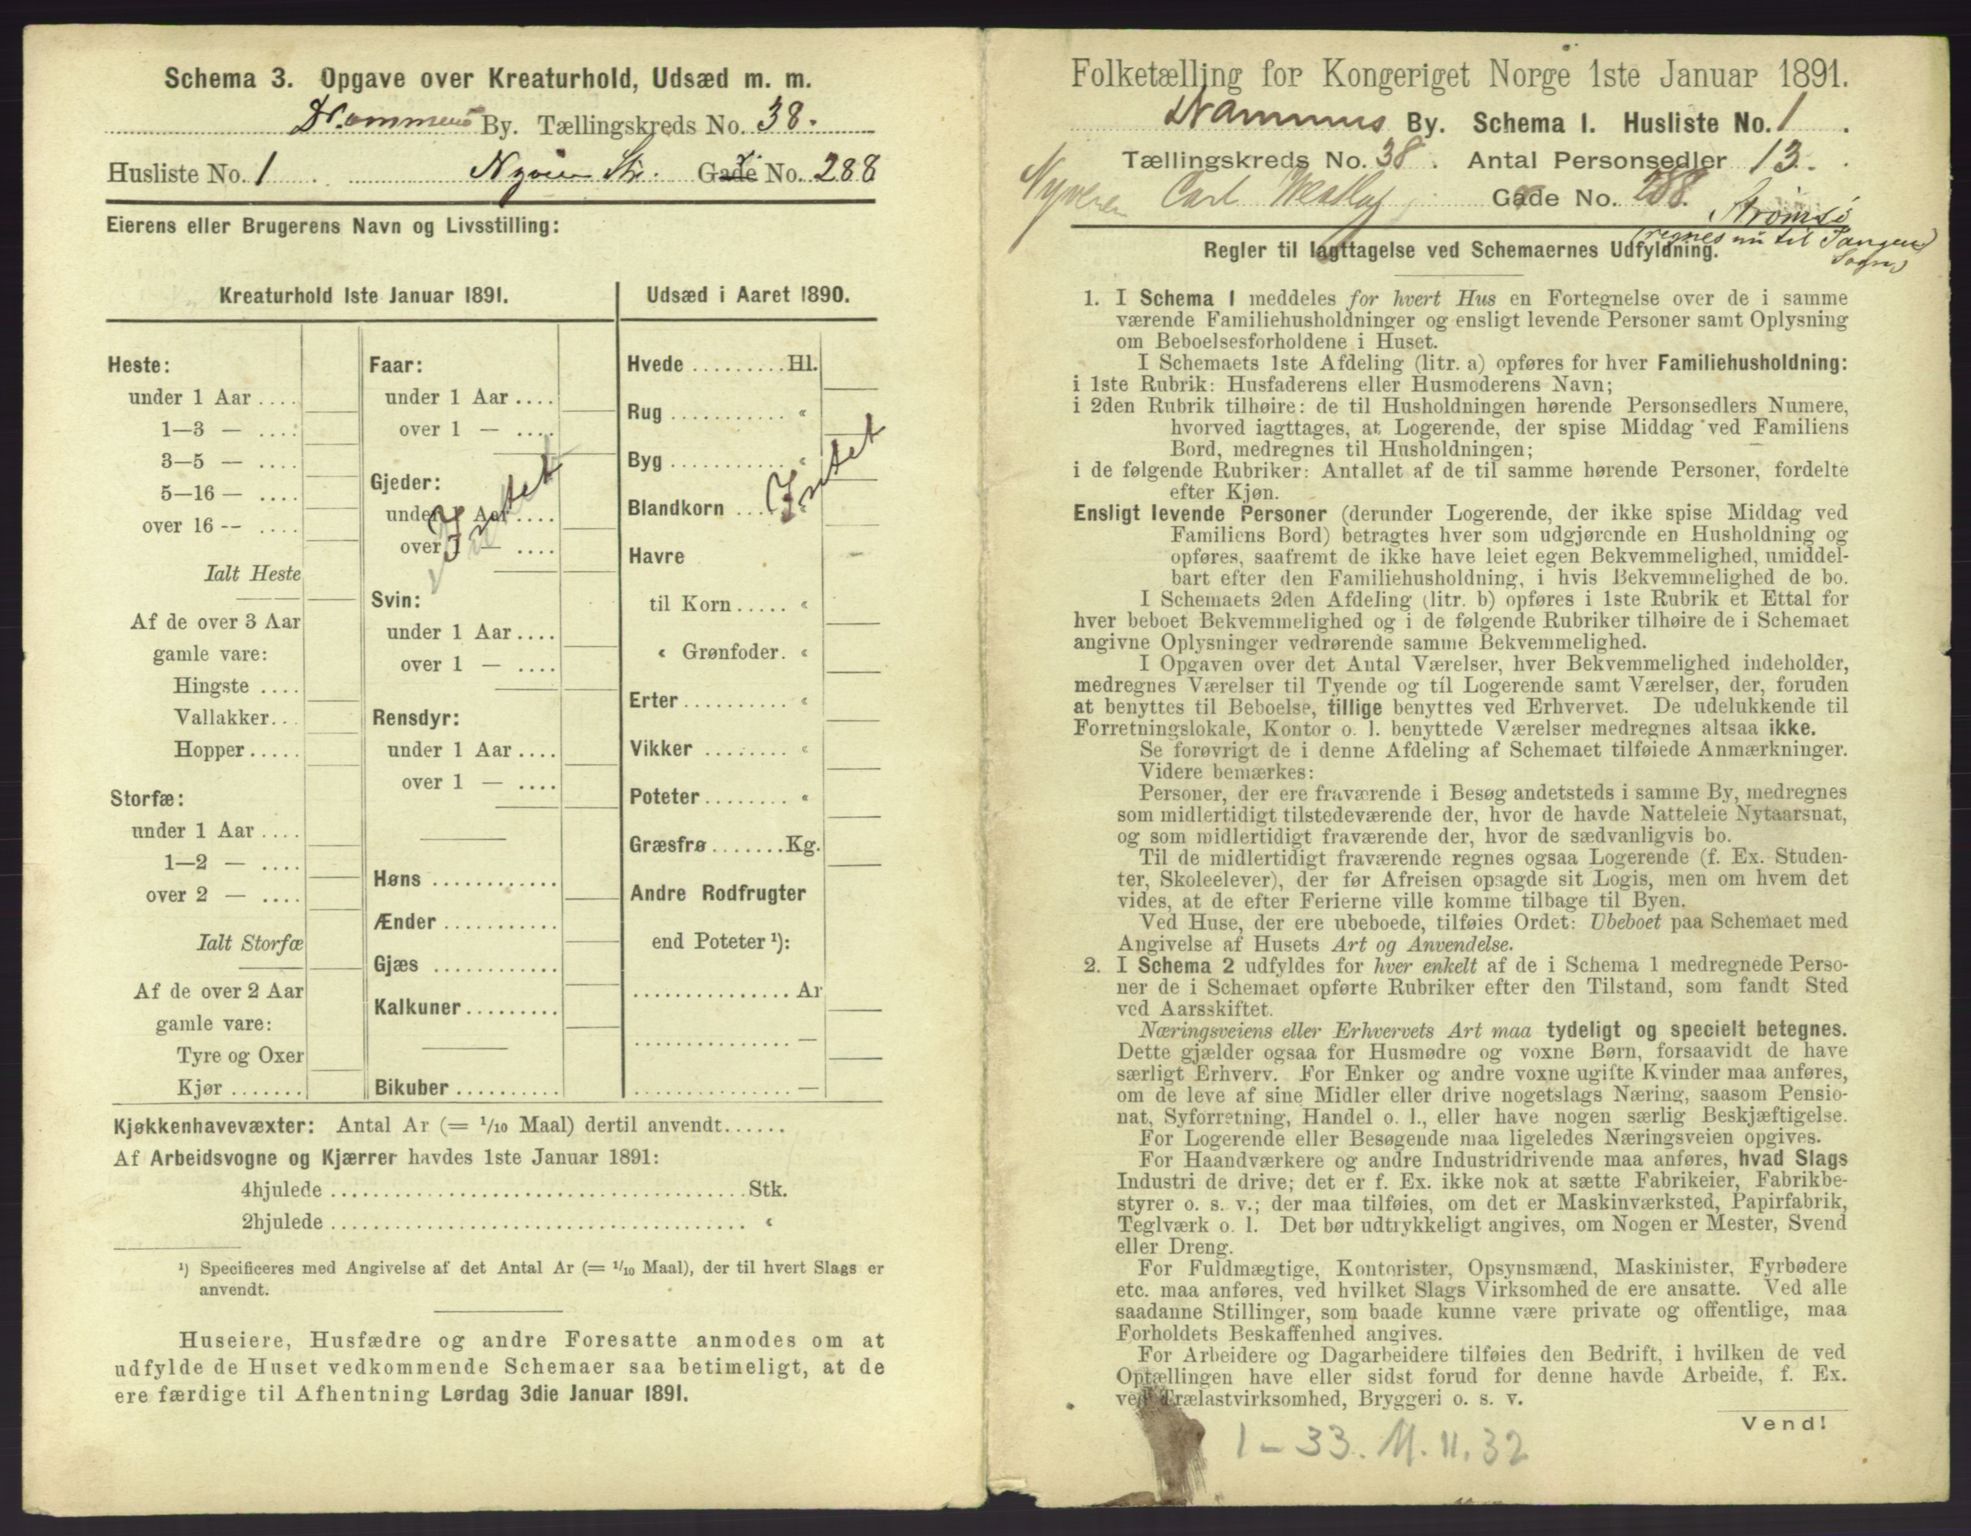 Schema 3. Opgave over Kreaturhold, Udsæd m. m.
Drammens By. Tællingskreds No. 38.
Husliste No. 1 Nyveien Str. Gade No. 288
Eierens eller Brugerens Navn og Livsstilling:
Kreaturhold 1ste Januar 1891.
Heste:
under 1 Aar ....
1—3 — ....
3—5 — ....
5—16 — ....
over 16 -- ....
Ialt Heste
Af de over 3 Aar
gamle vare:
Hingste ....
Vallakker...
Hopper.....
Storfæ:
under 1 Aar ....
1—2 — ....
over 2 — ....
Ialt Storfæ
Af de over 2 Aar
gamle vare:
Tyre og Oxer
Kjør.......
Faar:
under 1 Aar ....
over 1 — ....
Gjeder:
under 1 Aar ....
over 1 — ....
Intet
Svin:
under 1 Aar....
over 1 — ....
Rensdyr:
under 1 Aar....
over 1 — ....
Høns ............
Ænder ...........
Gjæs ............
Kalkuner.........
Bikuber ..........
Udsæd i Aaret 1890.
Hvede .........Hl.
Rug ........... “
Byg ........... “
Blandkorn ...... “
Intet
Havre
til Korn..... “
“ Grønfoder. “
Erter.......... “
Vikker ........ “
Poteter........ “
Græsfrø.......Kg.
Andre Rodfrugter
end Poteter ¹):
............... Ar
............... —
............... —
Kjøkkenhavevæxter: Antal Ar (= 1/10 Maal) dertil anvendt......
Af Arbeidsvogne og Kjærrer havdes 1ste Januar 1891:
4hjulede ........................................Stk.
2hjulede ........................................ “
¹) Specificeres med Angivelse af det Antal Ar (= 1/10 Maal), der til hvert Slags er
anvendt.
Huseiere, Husfædre og andre Foresatte anmodes om at
udfylde de Huset vedkommende Schemaer saa betimeligt, at de
ere færdige til Afhentning Lørdag 3die Januar 1891.
Folketælling for Kongeriget Norge 1ste Januar 1891.
Drammens By. Schema 1. Husliste No. 1.
Tællingskreds No. 38. Antal Personsedler 13.
Nyveien Carl Gade No. 288.
Strømsø
(regnes nu til Tangen
Sogn)
Regler til Iagttagelse ved Schemaernes Udfyldning.
1. I Schema 1 meddeles for hvert Hus en Fortegnelse over de i samme
værende Familiehusholdninger og ensligt levende Personer samt Oplysning
om Beboelsesforholdene i Huset.
I Schemaets 1ste Afdeling (litr. a) opføres for hver Familiehusholdning:
i 1ste Rubrik: Husfaderens eller Husmoderens Navn;
i 2den Rubrik tilhøire: de til Husholdningen hørende Personsedlers Numere,
hvorved iagttages, at Logerende, der spise Middag ved Familiens
Bord, medregnes til Husholdningen;
i de følgende Rubriker: Antallet af de til samme hørende Personer, fordelte
efter Kjøn.
Ensligt levende Personer (derunder Logerende, der ikke spise Middag ved
Familiens Bord) betragtes hver som udgjørende en Husholdning og
opføres, saafremt de ikke have leiet egen Bekvemmelighed, umiddel-
bart efter den Familiehusholdning, i hvis Bekvemmelighed de bo.
I Schemaets 2den Afdeling (litr. b) opføres i 1ste Rubrik et Ettal for
hver beboet Bekvemmelighed og i de følgende Rubriker tilhøire de i Schemaet
angivne Oplysninger vedrørende samme Bekvemmelighed.
I Opgaven over det Antal Værelser, hver Bekvemmelighed indeholder,
medregnes Værelser til Tyende og til Logerende samt Værelser, der, foruden
at benyttes til Beboelse, tillige benyttes ved Erhvervet. De udelukkende til
Forretningslokale, Kontor o. l. benyttede Værelser medregnes altsaa ikke.
Se forøvrigt de i denne Afdeling af Schemaet tilføiede Anmærkninger.
Videre bemærkes:
Personer, der ere fraværende i Besøg andetsteds i samme By, medregnes
som midlertidigt tilstedeværende der, hvor de havde Natteleie Nytaarsnat,
og som midlertidigt fraværende der, hvor de sædvanligvis bo.
Til de midlertidigt fraværende regnes ogsaa Logerende (f. Ex. Studen-
ter, Skoleelever), der før Afreisen opsagde sit Logis, men om hvem det
vides, at de efter Ferierne ville komme tilbage til Byen.
Ved Huse, der ere ubeboede, tilføies Ordet: Ubeboet paa Schemaet med
Angivelse af Husets Art og Anvendelse.
2. I Schema 2 udfyldes for hver enkelt af de i Schema 1 medregnede Perso-
ner de i Schemaet opførte Rubriker efter den Tilstand, som fandt Sted
ved Aarsskiftet.
Næringsveiens eller Erhvervets Art maa tydeligt og specielt betegnes.
Dette gjælder ogsaa for Husmødre og voxne Børn, forsaavidt de have
særligt Erhverv. For Enker og andre voxne ugifte Kvinder maa anføres,
om de leve af sine Midler eller drive nogetslags Næring, saasom Pensio-
nat, Syforretning, Handel o. l., eller have nogen særlig Beskjæftigelse.
For Logerende eller Besøgende maa ligeledes Næringsveien opgives.
For Haandværkere og andre Industridrivende maa anføres, hvad Slags
Industri de drive; det er f. Ex. ikke nok at sætte Fabrikeier, Fabrikbe-
styrer o. s. v.; der maa tilføies, om det er Maskinværksted, Papirfabrik,
Teglværk o. l. Det bør udtrykkeligt angives, om Nogen er Mester, Svend
eller Dreng.
For Fuldmægtige, Kontorister, Opsynsmænd, Maskinister, Fyrbødere
etc. maa anføres, ved hvilket Slags Virksomhed de ere ansatte. Ved alle
saadanne Stillinger, som baade kunne være private og offentlige, maa
Forholdets Beskaffenhed angives.
For Arbeidere og Dagarbeidere tilføies den Bedrift, i hvilken de ved
Optællingen have eller sidst forud for denne havde Arbeide, f. Ex.
ved Trælastvirksomhed, Bryggeri o. s. v.
Vend!
1 – 33. M. 11. 32